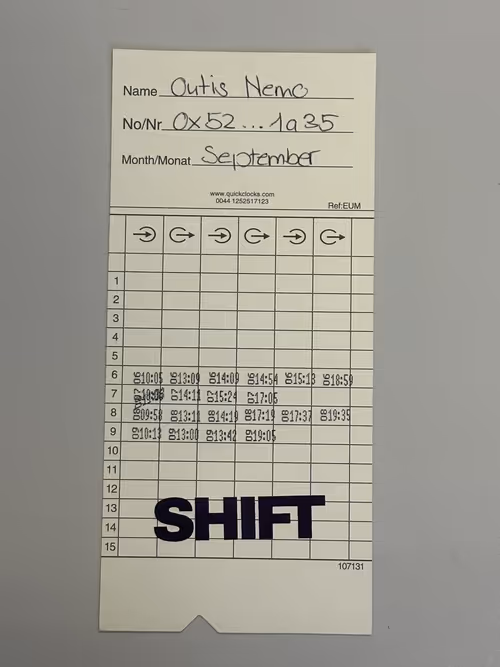 Name Outis Nemo
No/Nr 0x52...1a35
Month/Monat September
www.quickclocks.com
0044 1252517123
Ref:EUM
1
2
3
4
5
6 06 10:05 06 13:09 06 14:09 06 14:54 06 15:13 06 18:59
7 07 14:11 07 15:24 07 17:05
8 08 09:58 08 13:11 08 14:19 08 17:19 08 17:37 08 19:35
9 09 10:13 09 13:00 09 13:42 09 19:05
10
11
12
13
14
15
SHIFT
107131